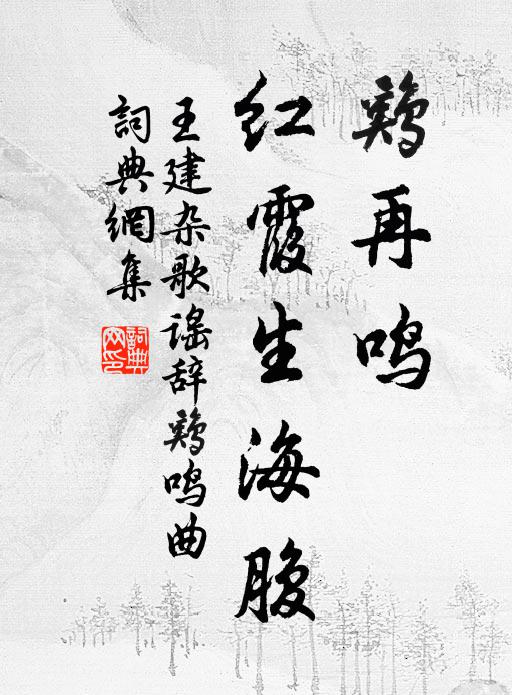 鷄再鸣
红霞生海腹
王建杂歌谣辞鷄鸣曲
詞典網集
詞典
网印